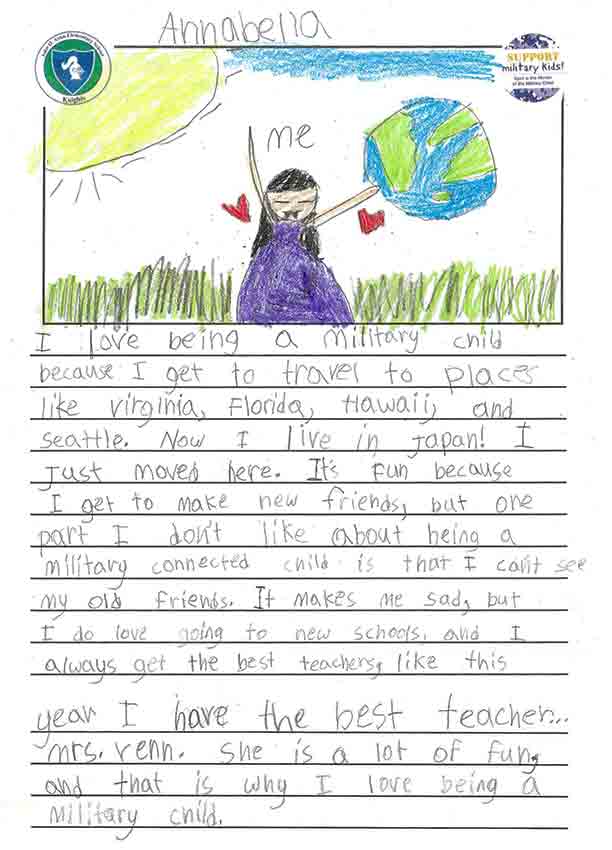 Annabella
Knights
SUPPORT
military Kids!
April is the Month
of the Military Child
me
I love being a military child
because I get to travel to places
like virginia, Florida, Hawaii, and
seattle. Now I live in Japan! I
just moved here. It's fun because
I get to make new friends, but one
part I don't like about being a
military connected child is that I can't see
my old friends. It makes me sad, but
I do love going to new schools. and I
always get the best teachers, like this
year I have the best teacher...
mrs. renn. she is a lot of fun,
and that is why I love being a
military child.